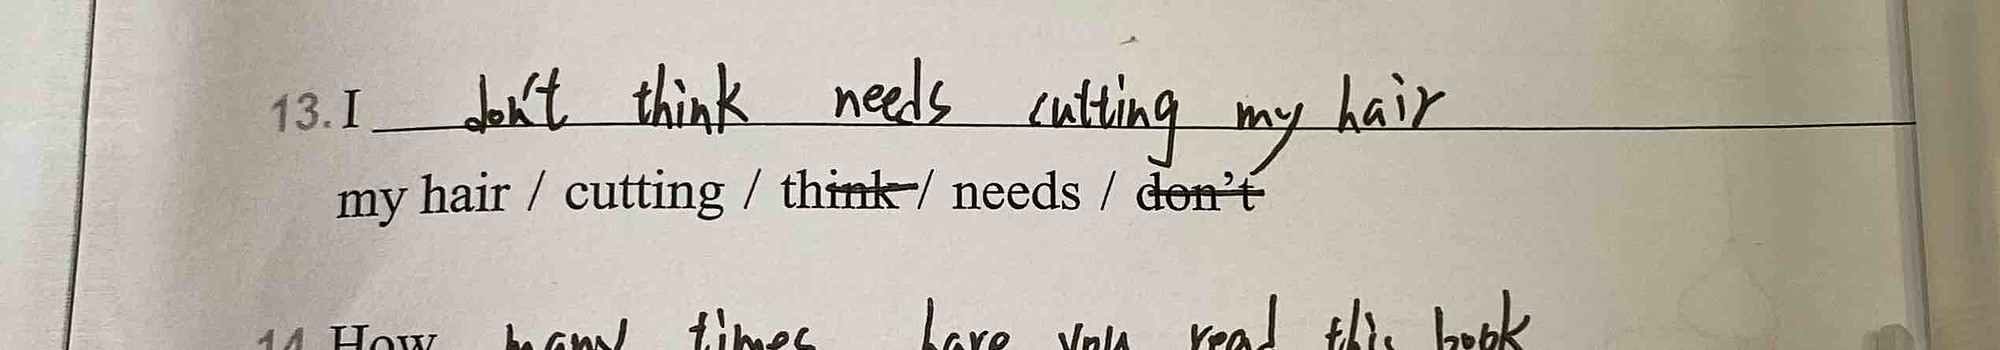 13. I don't think needs cutting my hair
my hair / cutting / think / needs / don't
14. How many times have you read this book